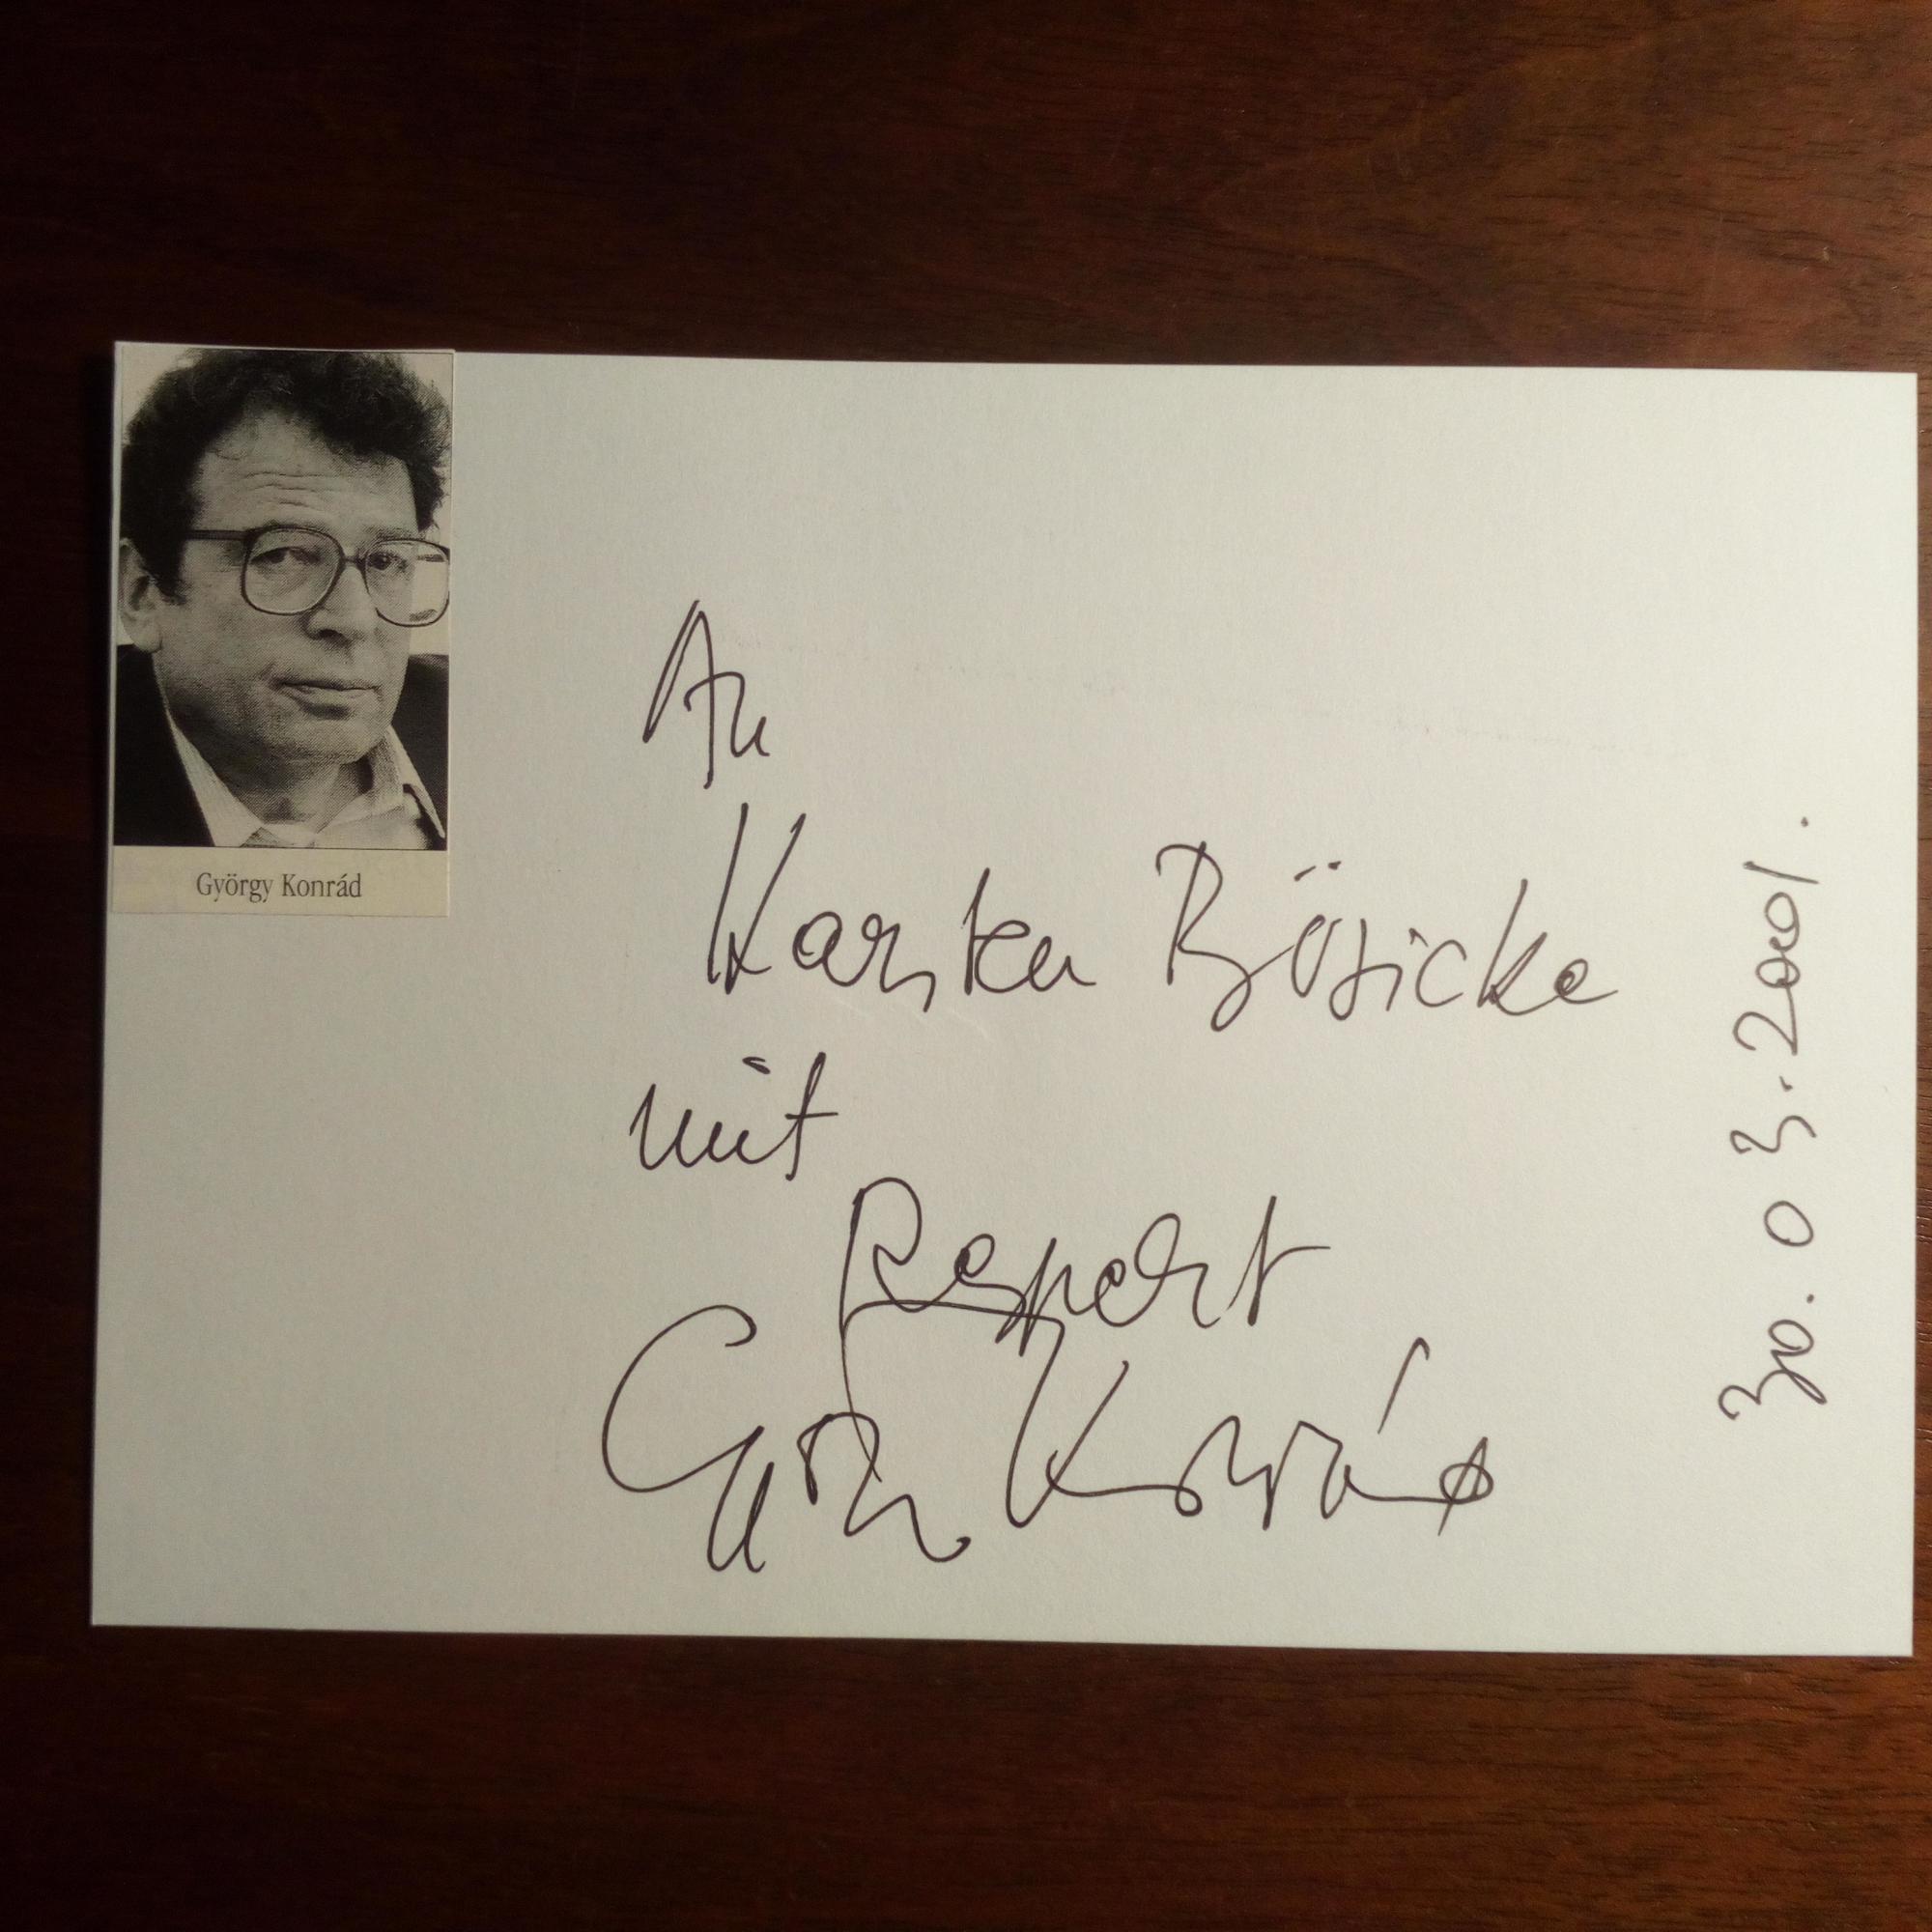 György Konrád
An
Karsten Bösicke
mit
Respekt
György Konrád
30.03.2001.